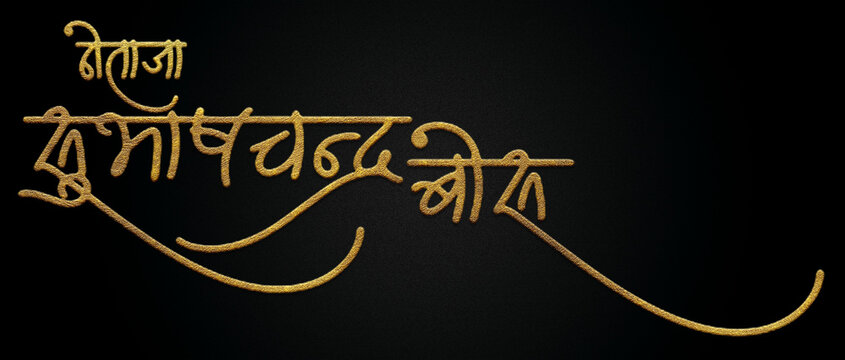 नेताजी
सुभाषचन्द्र बोस